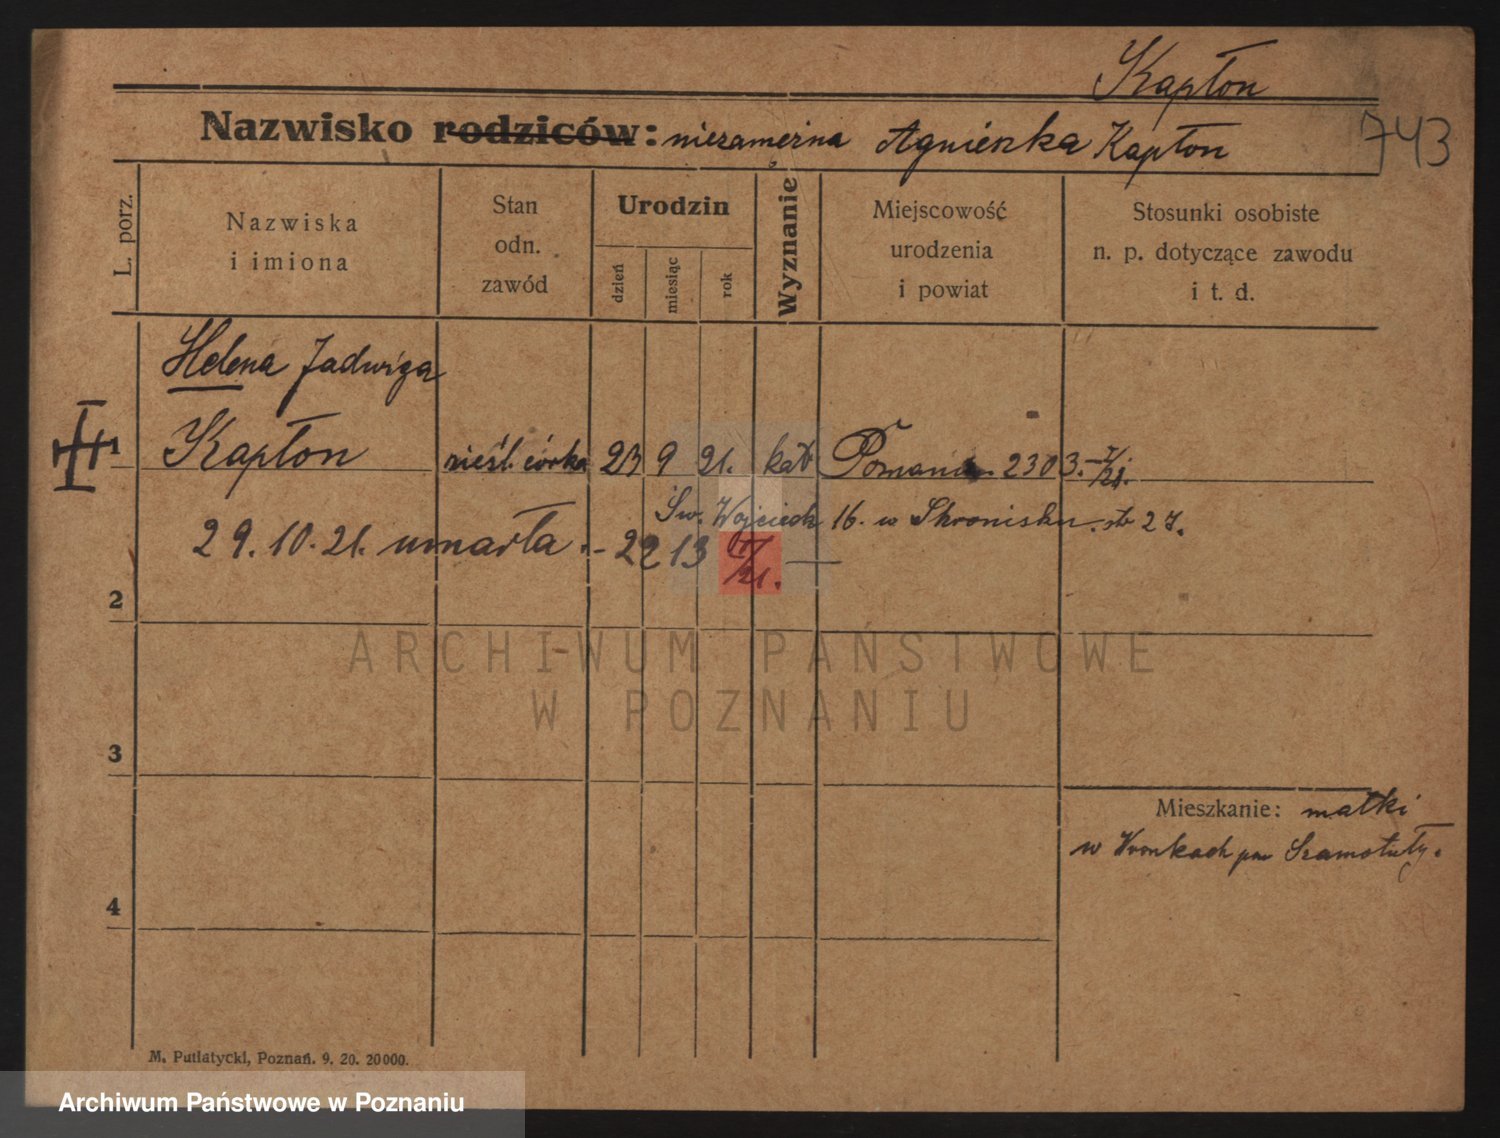 Kapłon
Nazwisko rodziców: niezamężna Agnieszka Kapłon
743
L. porz.
Nazwiska
i imiona
Stan
odn.
zawód
Urodzin
dzień
miesiąc
rok
Wyznanie
Miejscowość
urodzenia
i powiat
Stosunki osobiste
n. p. dotyczące zawodu
i t. d.
Helena Jadwiga
1 Kapłon nieśl. córka 23 9 21. kat Poznań 2303. I/21.
Św. Wojciech 16. w Skronisku. 27.
29.10.21. umarła. - 2213 II/21. —
2
ARCHIWUM PAŃSTWOWE
W POZNANIU
3
Mieszkanie: matki
w Wronkach pow Szamotuły.
4
M. Putiatycki, Poznań. 9. 20. 20000.
Archiwum Państwowe w Poznaniu